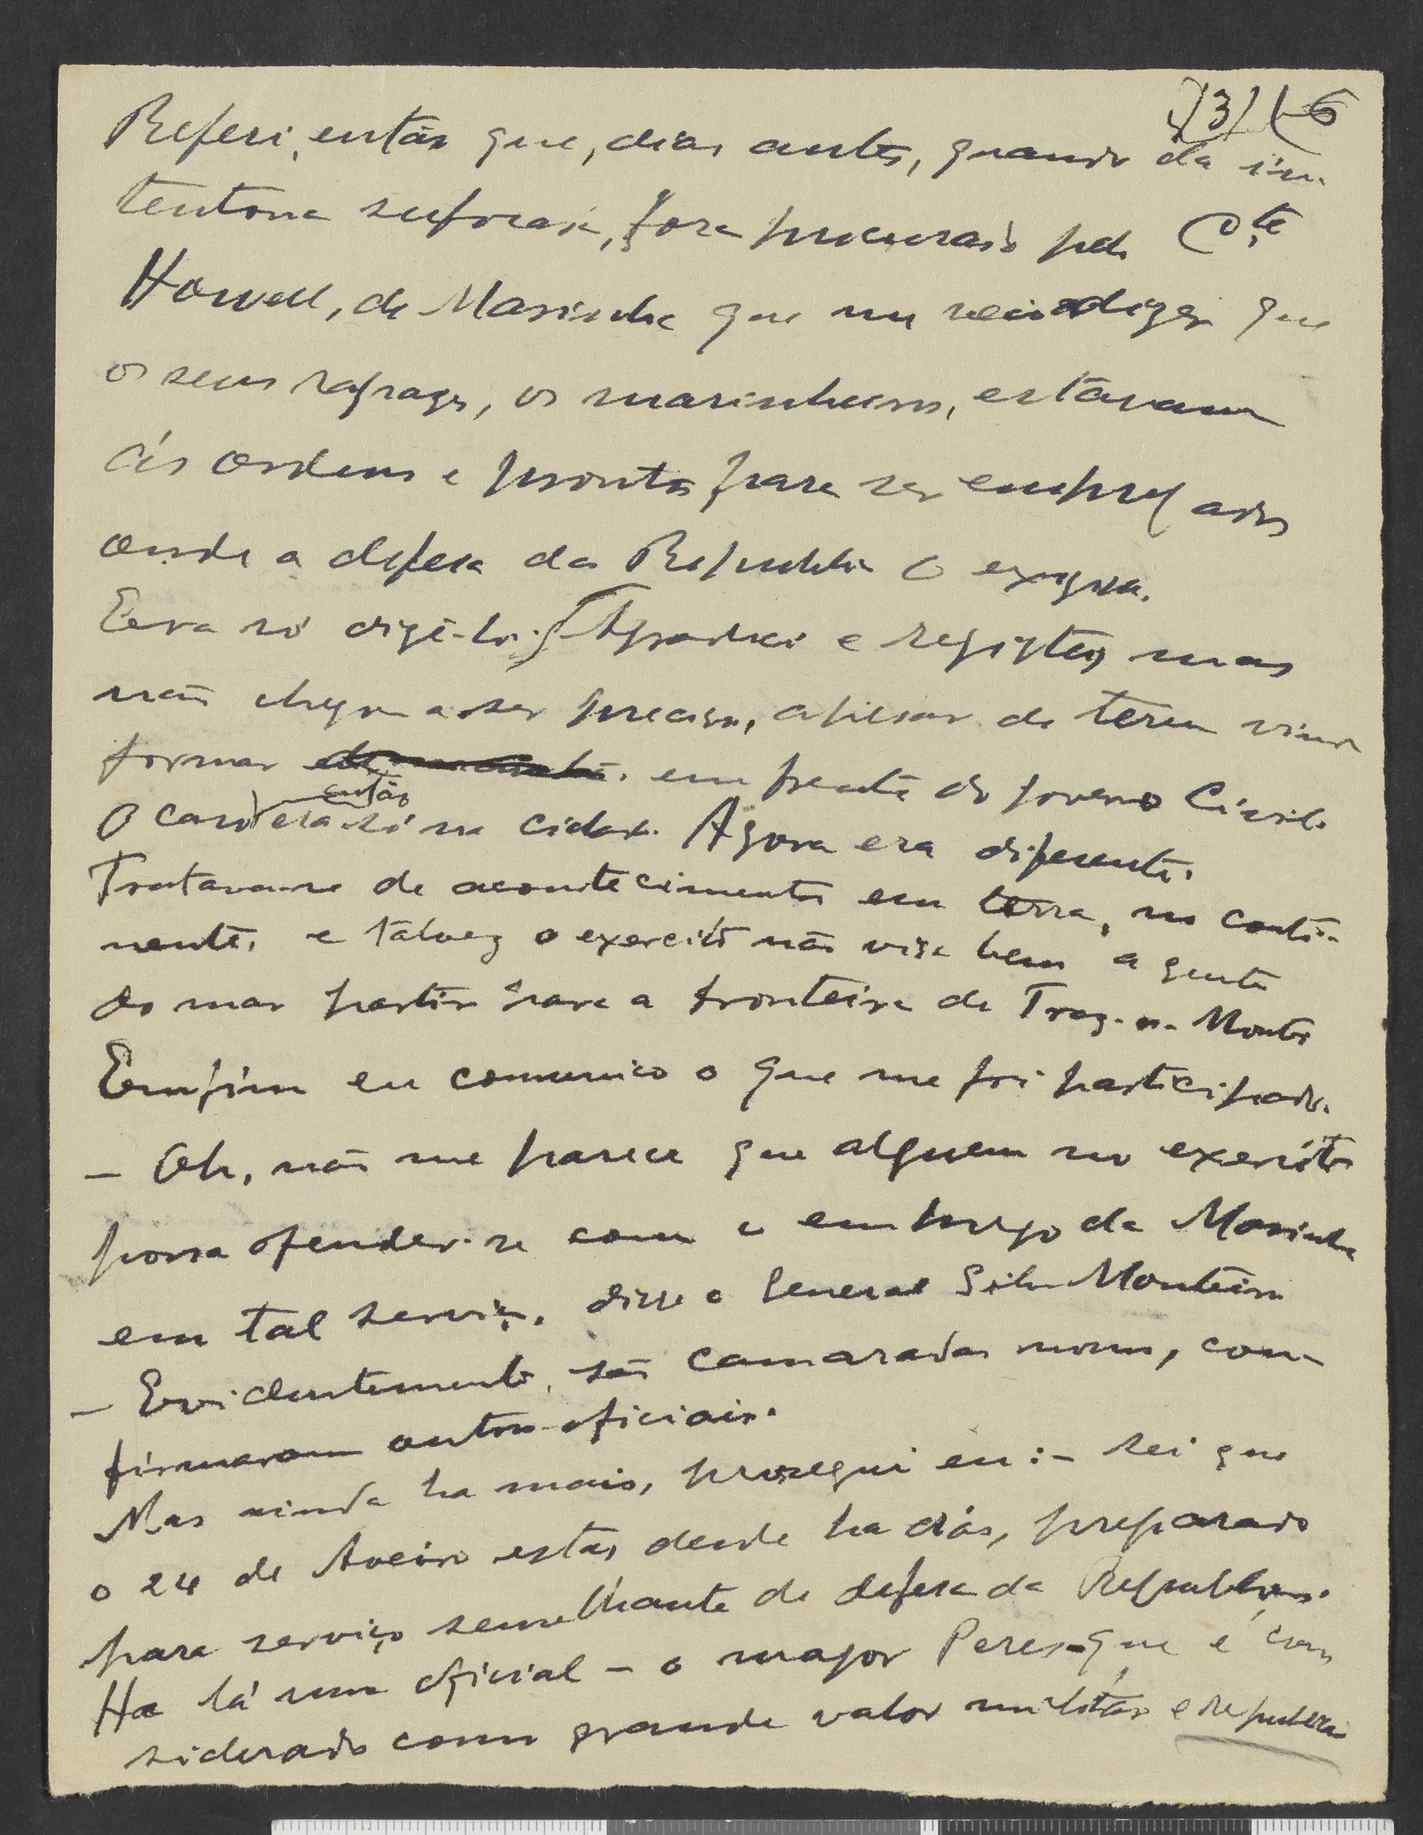 (3) (-6
Referi, então que, dias antes, quando da in-
tentona sufocada, fora procurado pelo Cte
Howell, da Marinha que me veio dizer que
os seus rapazes, os marinheiros, estavam
ás ordens e prontos para ser empregados
onde a defesa da Republica o exigisse.
Era só dizê-lo. Agradeci e registei, mas
não chegou a ser preciso, apesar de terem vindo
formar em frente do Governo Civil.
O caso então era só na cidade. Agora era diferente.
Tratava-se de acontecimentos em terra, no conti-
nente, e talvez o exercito não visse bem a gente
do mar partir para a fronteira de Traz-os-Montes
Emfim eu comunico o que me foi participado.
— Oh, não me parece que alguem no exercito
possa ofender-se com o emprego da Marinha
em tal serviço, disse o General Silva Monteiro
— Evidentemente, são camaradas nossos, con-
firmaram outros oficiais.
Mas ainda ha mais, prosegui eu: — sei que
o 24 de Aveiro está, desde ha dias, preparado
para serviço semelhante de defesa da Republica.
Ha lá um oficial — o major Peres — que é con
siderado como grande valor militar e republi